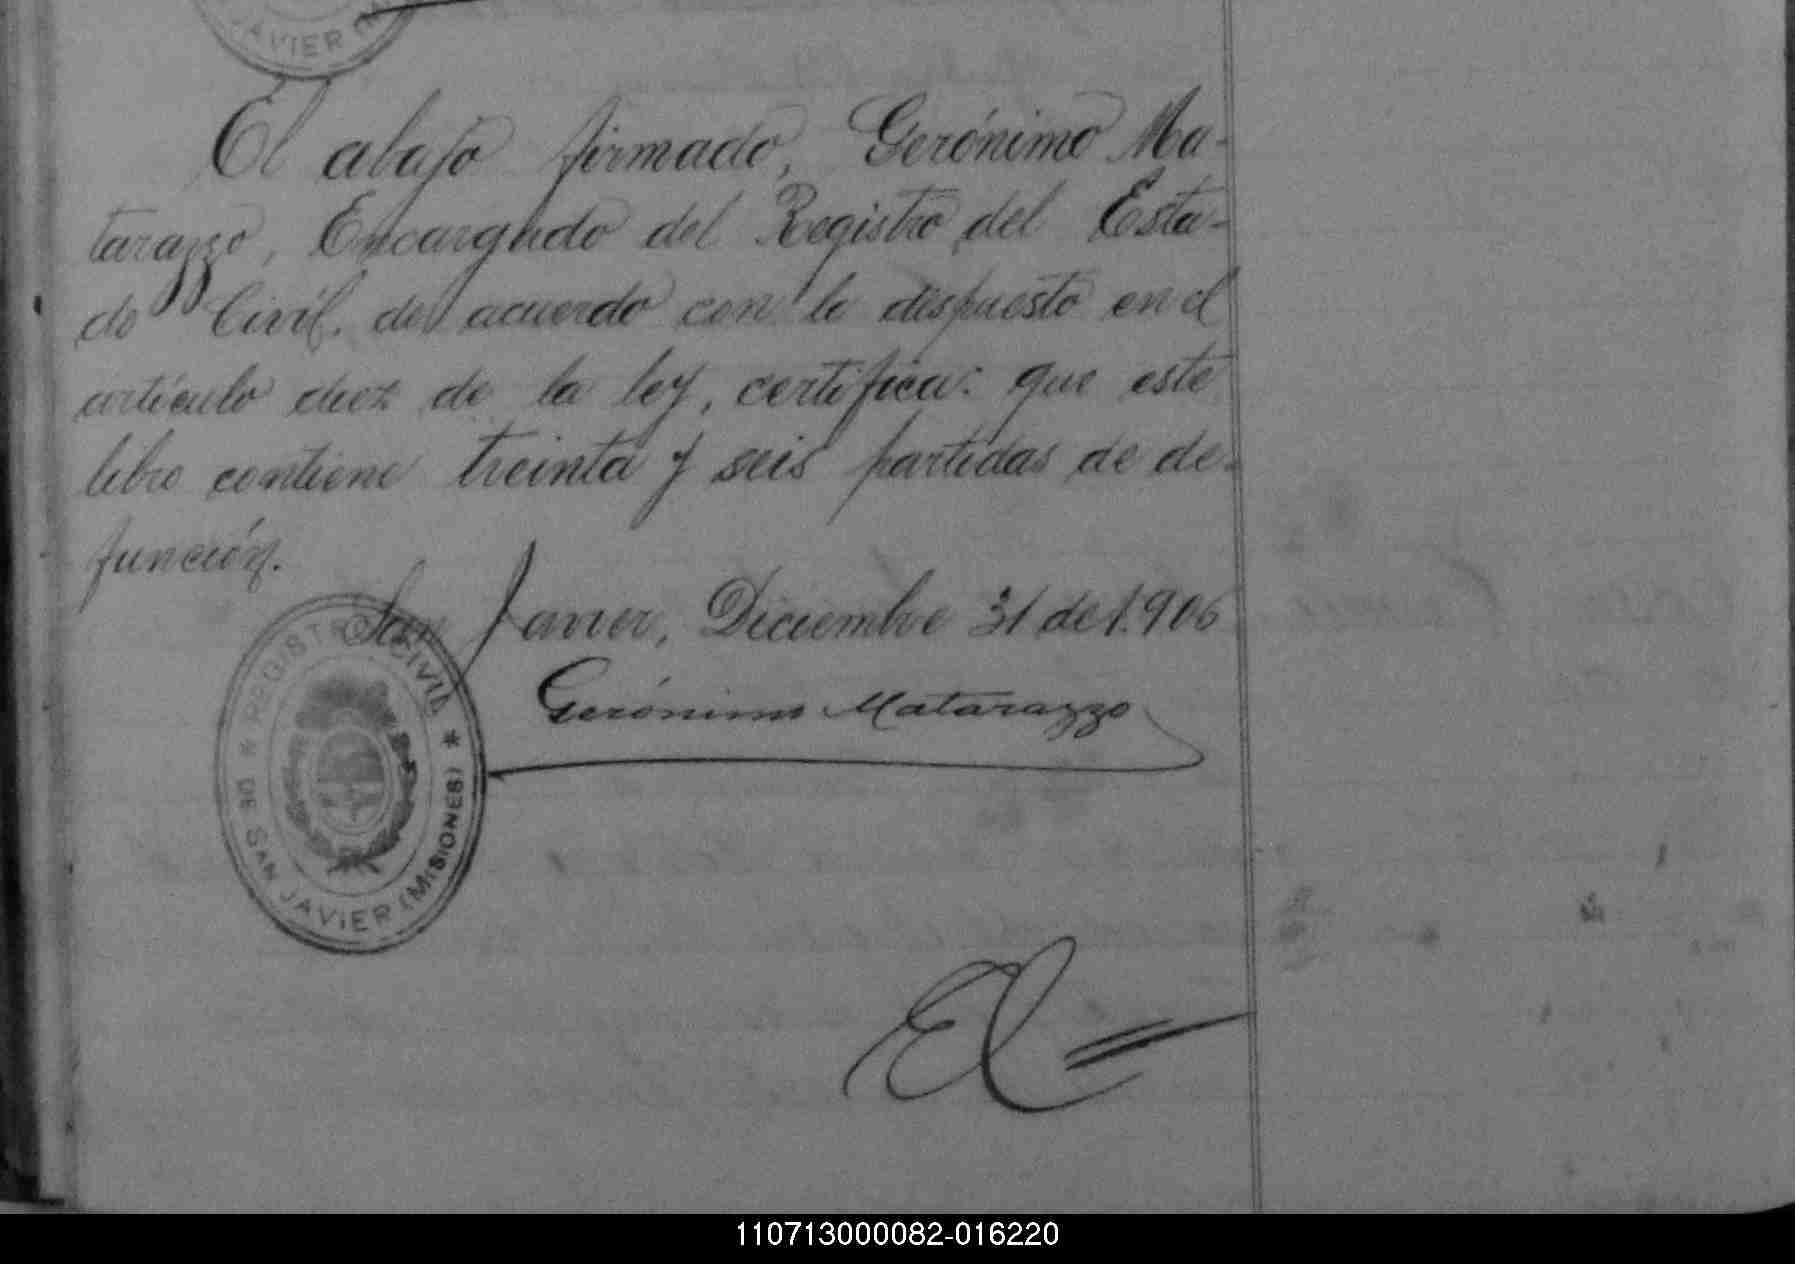 JAVIER (M
El abajo firmado, Gerónimo Ma-
tarazzo, Encargado del Registro del Esta-
do Civil, de acuerdo con lo dispuesto en el
artículo diez de la ley, certifica: que este
libro contiene treinta y seis partidas de de-
función.
San Javier, Diciembre 31 de 1.906
Gerónimo Matarazzo
* REGISTRO CIVIL *
DE SAN JAVIER (MISIONES)
110713000082-016220